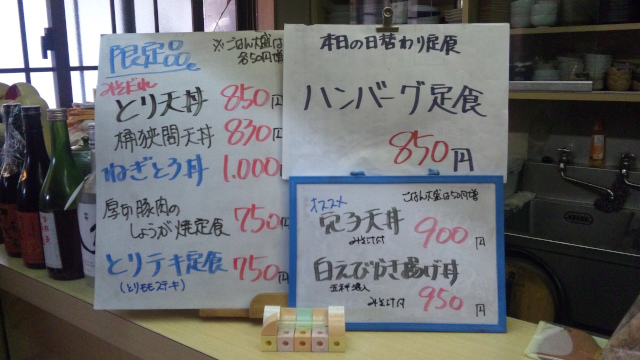 限定品
※ごはん大盛は
各50円増
みそだれ
とり天丼 850円
桶狭間天丼 830円
ねぎとろ丼 1.000円
厚切豚肉の
しょうが焼定食 750円
とりテキ定食 750円
(とりモモステーキ)
本日の日替わり定食
ハンバーグ定食
850円
オススメ
ごはん大盛は50円増
穴子天丼 900円
みそ汁付
白えびかき揚げ丼
みそ汁付 950円